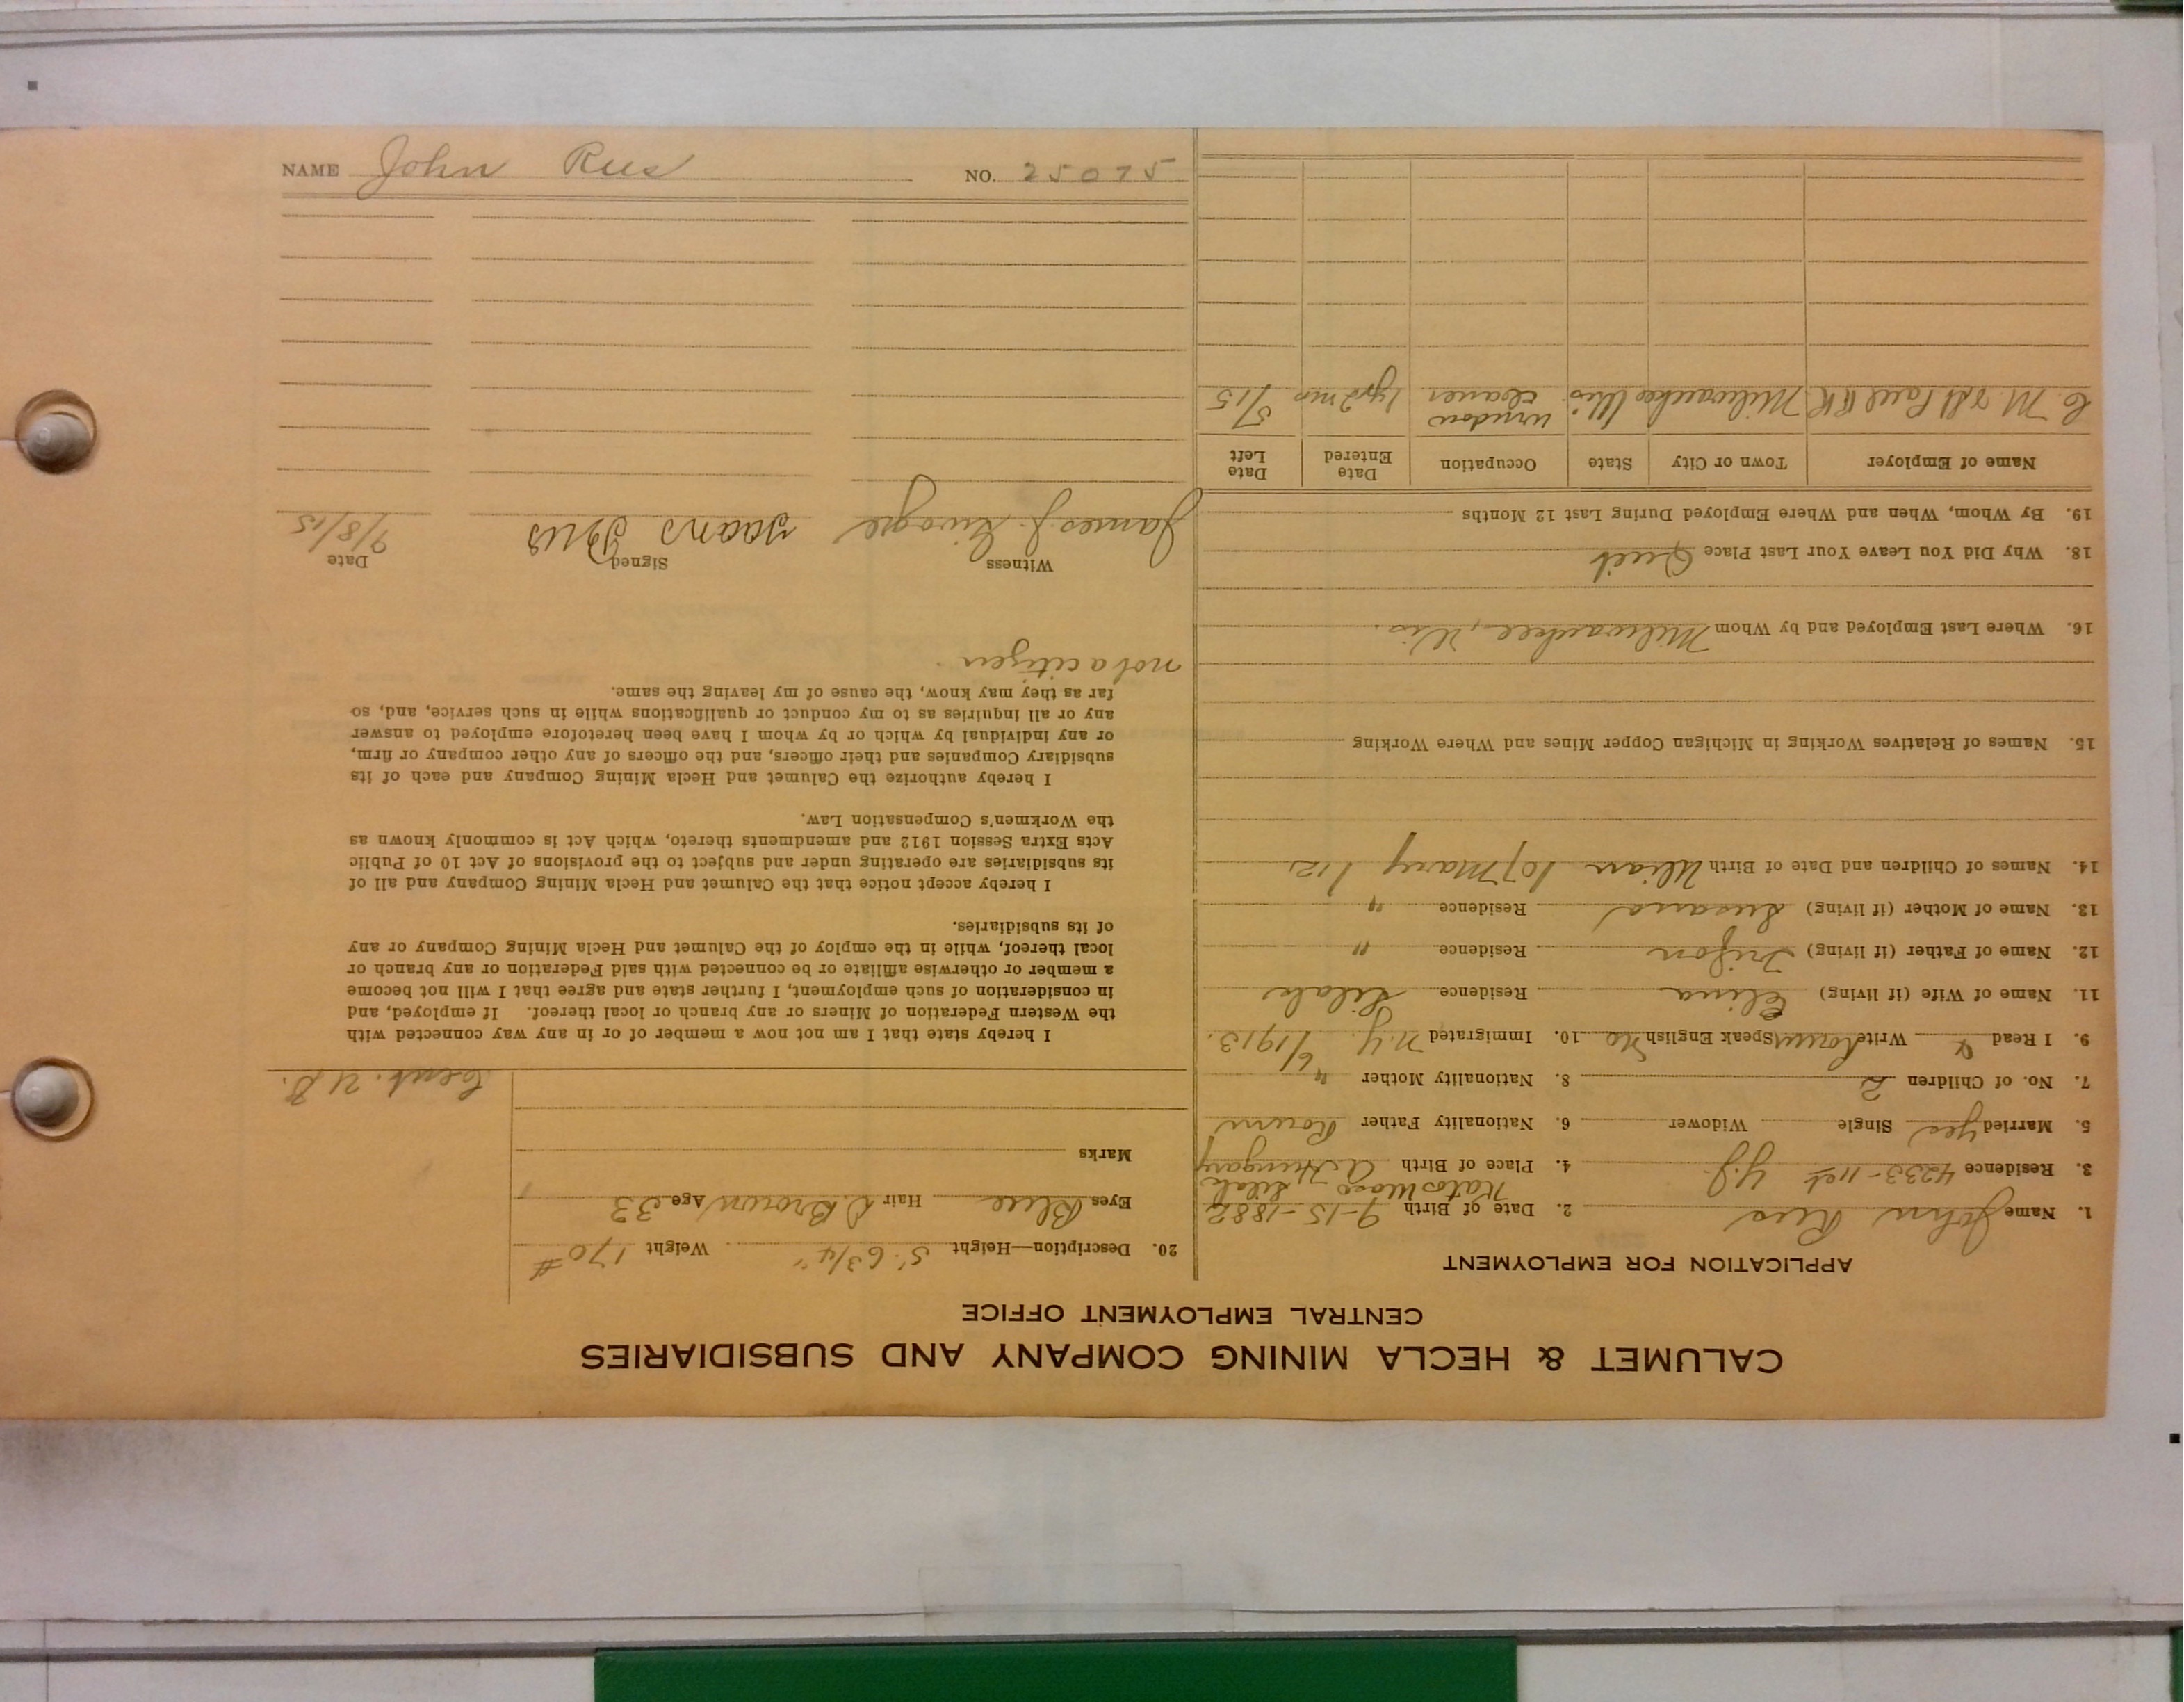 CALUMET & HECLA MINING COMPANY AND SUBSIDIARIES
CENTRAL EMPLOYMENT OFFICE
APPLICATION FOR EMPLOYMENT
1. Name John Rus 2. Date of Birth 9-15-1882
3. Residence 4233-11st Y.J. 4. Place of Birth A. Hungary
5. Married yes Single Widower 6. Nationality Father Roum
7. No. of Children 2 8. Nationality Mother "
9. I Read Write Roum Speak English No 10. Immigrated N.Y. 6/1913.
11. Name of Wife (if living) Elina Residence Silah
12. Name of Father (if living) Trifon Residence "
13. Name of Mother (if living) Susana Residence "
14. Names of Children and Date of Birth 107 Mary 112
15. Names of Relatives Working in Michigan Copper Mines and Where Working
16. Where Last Employed and by Whom Milwaukee, Wis.
18. Why Did You Leave Your Last Place Quit
19. By Whom, When and Where Employed During Last 12 Months
Name of Employer Town or City State Occupation Date Entered Date Left
C. M. & St Paul RR Milwaukee Wis window cleaner 1yr 2 mo 5/15
20. Description—Height 5' 6 3/4" Weight 170#
Eyes Blue Hair D. Brown Age 33
Marks
Cent. U.S.
I hereby state that I am not now a member of or in any way connected with
the Western Federation of Miners or any branch or local thereof. If employed, and
in consideration of such employment, I further state and agree that I will not become
a member or otherwise affiliate or be connected with said Federation or any branch or
local thereof, while in the employ of the Calumet and Hecla Mining Company or any
of its subsidiaries.
I hereby accept notice that the Calumet and Hecla Mining Company and all of
its subsidiaries are operating under and subject to the provisions of Act 10 of Public
Acts Extra Session 1912 and amendments thereto, which Act is commonly known as
the Workmen's Compensation Law.
I hereby authorize the Calumet and Hecla Mining Company and each of its
subsidiary Companies and their officers, and the officers of any other company or firm,
or any individual by which or by whom I have been heretofore employed to answer
any or all inquiries as to my conduct or qualifications while in such service, and, so
far as they may know, the cause of my leaving the same.
not a citizen.
Witness Signed Date
James J. Rus 9/8/15
NAME John Rus NO. 25075